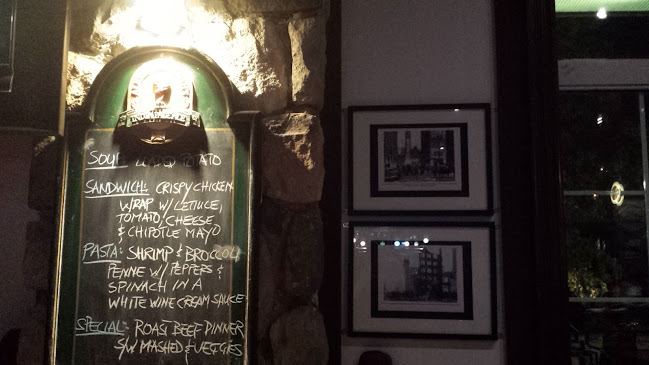 SOUP: LOADED POTATO
SANDWICH: CRISPY CHICKEN
WRAP W/ LETTUCE,
TOMATO, CHEESE
& CHIPOTLE MAYO
PASTA: SHRIMP & BROCCOLI
PENNE W/ PEPPERS &
SPINACH IN A
WHITE WINE CREAM SAUCE
SPECIAL: ROAST BEEF DINNER
S/W MASHED & VEGGIES